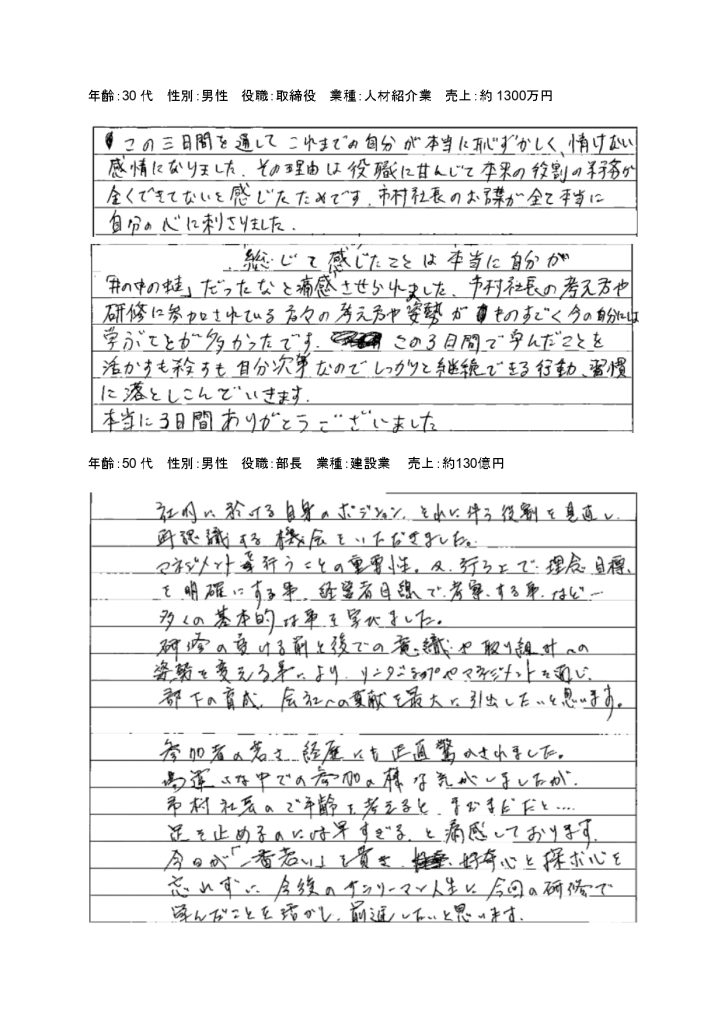 年齢：30 代　性別：男性　役職：取締役　業種：人材紹介業　売上：約 1300万円
この三日間を通して これまでの自分が本当に恥ずかしく、情けない
感情になりました。その理由は役職に甘んじて本来の役割の業務が
全くできてないと感じたためです。市村社長のお言葉が全て本当に
自分の心に刺さりました。
総じて感じたことは本当に自分が
「井の中の蛙」だったなと痛感させられました。市村社長の考え方や
研修に参加されている方々の考え方や姿勢がものすごく今の自分には
学ぶことが多かったです。この3日間で学んだことを
活かすも殺すも自分次第なのでしっかりと継続できる行動、習慣
に落としこんでいきます。
本当に3日間ありがとうございました
年齢：50 代　性別：男性　役職：部長　業種：建設業　売上：約130億円
社内に於ける自身のポジション、それに伴う役割を見直し、
再認識する機会をいただきました。
マネジメントを行うことの重要性。又、行う上で、理念、目標、
を明確にする事、経営者目線で考察する事、など…
多くの基本的な事を学びました。
研修の受ける前と後での意識や取り組みへの
姿勢を変える事により、リーダーシップやマネジメントを通じ、
部下の育成、会社への貢献を最大に引出したいと思います。
参加者の若さ、経歴にも正直驚かされました。
場違いな中での参加の様な気がしましたが、
市村社長の年齢を考えると、まだまだだと…
足を止めるのには早すぎる、と痛感しております。
今日が「一番若い」を貫き、好奇心と探求心を
忘れずに、今後のサラリーマン人生に今回の研修で
学んだことを活かし、前進したいと思います。